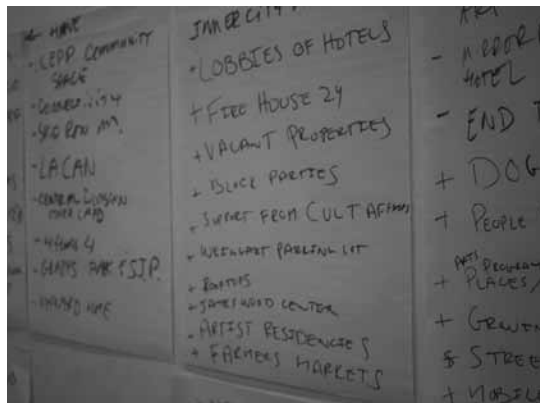 HOME
- CEPP COMMUNITY
SPACE
- SKID ROW
- LACAN
- CENTRAL DIVISION
- GLADYS PARK & S.J.P.
- HARVARD HOME
INNER CITY
- LOBBIES OF HOTELS
+ FIRE HOUSE 24
+ VACANT PROPERTIES
+ BLOCK PARTIES
+ SUPPORT FROM CULT AFFAIRS
+ WEINGART PARKING LOT
+ ROOFTOPS
+ JAMES WOOD CENTER
- ARTIST RESIDENCIES
+ FARMERS MARKETS
ART
- MIRROR
HOTEL
- END
+ DOG
+ PEOPLE
ARTS PROGRAM
+ PLACES,
+ GROWIN
& STREE
+ MOBILE